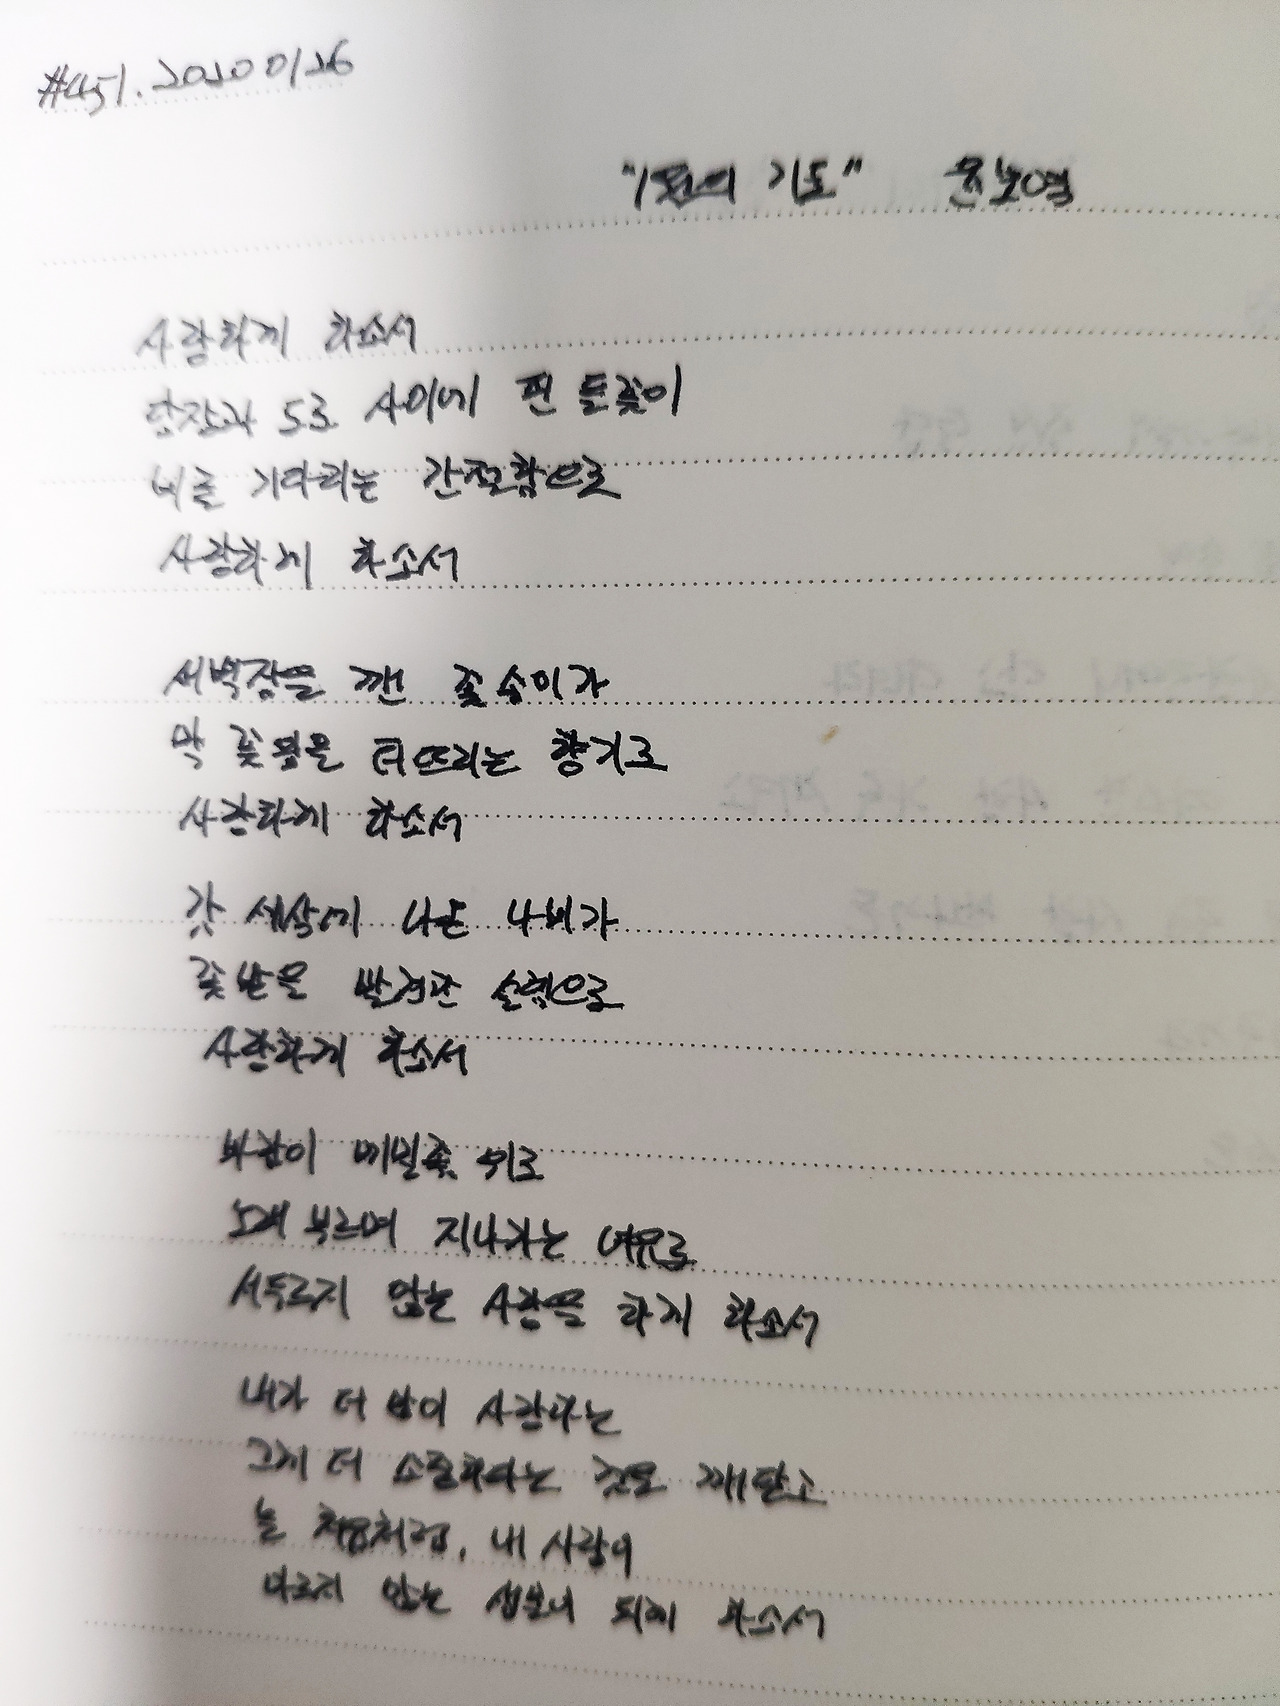 #451. 20200126
"1분의 기도" 윤보영
사랑하게 하소서
담장과 도로 사이에 핀 들꽃이
비를 기다리는 간절함으로
사랑하게 하소서
새벽잠을 깬 꽃송이가
막 꽃망울을 터뜨리는 향기로
사랑하게 하소서
갓 세상에 나온 나비가
꽃밭을 발견한 설렘으로
사랑하게 하소서
바람이 메밀꽃 위로
노래 부르며 지나가는 여유로
서두르지 않는 사랑을 하게 하소서
내가 더 많이 사랑하는
그게 더 소중하다는 것을 깨닫고
늘 처음처럼, 내 사랑이
마르지 않는 샘물이 되게 하소서